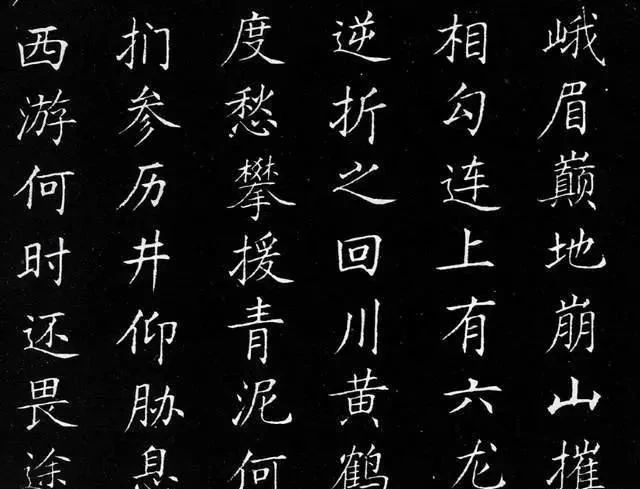 峨眉巅地崩山摧
相勾连上有六龙
逆折之回川黄鹤
度愁攀援青泥何
扪参历井仰胁息
西游何时还畏途